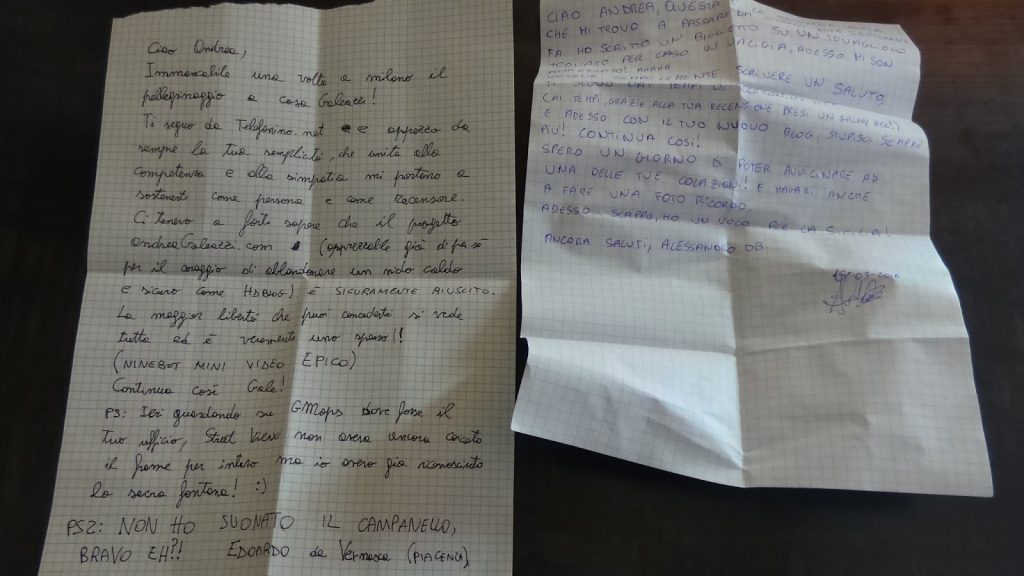 Ciao Andrea,
Immancabile una volta a milano il
pellegrinaggio a casa Galeazzi!
Ti seguo da Telefonino.net e apprezzo da
sempre la tua semplicità, che unita alla
competenza e alla simpatia mi portano a
sostenerti come persona e come recensore.
Ci tenevo a farti sapere che il progetto
AndreaGaleazzi.com (apprezzabile già di per sé
per il coraggio di abbandonare un nido caldo
e sicuro come HDBLOG) è SICURAMENTE RIUSCITO.
La maggior libertà che puoi concederti si vede
tutta ed è veramente uno spasso!!
(NINEBOT MINI VIDEO EPICO)
Continua così Gale!
PS: Ieri guardando su GMaps dove fosse il
tuo ufficio, Street View non aveva ancora caricato
il frame per intero ma io avevo già riconosciuto
la sacra fontana! :)
PS2: NON HO SUONATO IL CAMPANELLO,
BRAVO EH?! EDOARDO da Vernasca (PIACENZA)
CIAO ANDREA, QUESTA
CHE MI TROVO A PASSARE DA
FA HO SCRITTO UN BIGLIETTO SU UN TOVAGLIOLO
TROVATO PER CASO IN VALIGIA, ADESSO MI SON
SCRIVERE UN SALUTO,
TI SEGUO DAI TEMPI DI
(AI TEMPI, GRAZIE ALLA TUA RECENSIONE PRESI UN GALAXY ACE!)
E ADESSO CON IL TUO NUOVO BLOG, STUPISCI SEMPRE
PIÙ! CONTINUA COSÌ!
SPERO UN GIORNO DI POTER AVVICINARE AD
UNA DELLE TUE COLAZIONI! E MAGARI ANCHE
A FARE UNA FOTO RICORDO
ADESSO SCAPPO, HO UN VOLO PER LA SICILIA!
ANCORA SALUTI, ALESSANDRO DB.